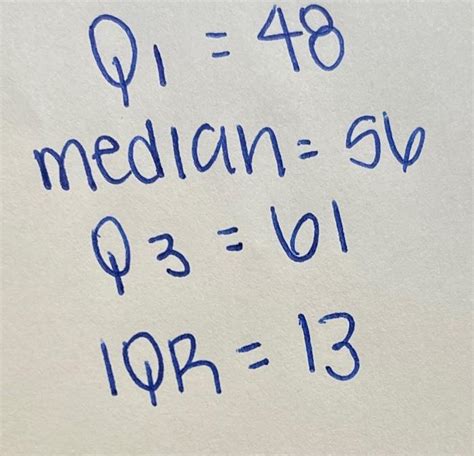 Q1 = 48
median = 56
Q3 = 61
IQR = 13